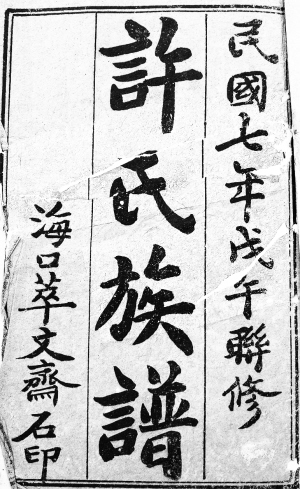 民國七年戊午聯修
許氏族譜
海口萃文齋石印